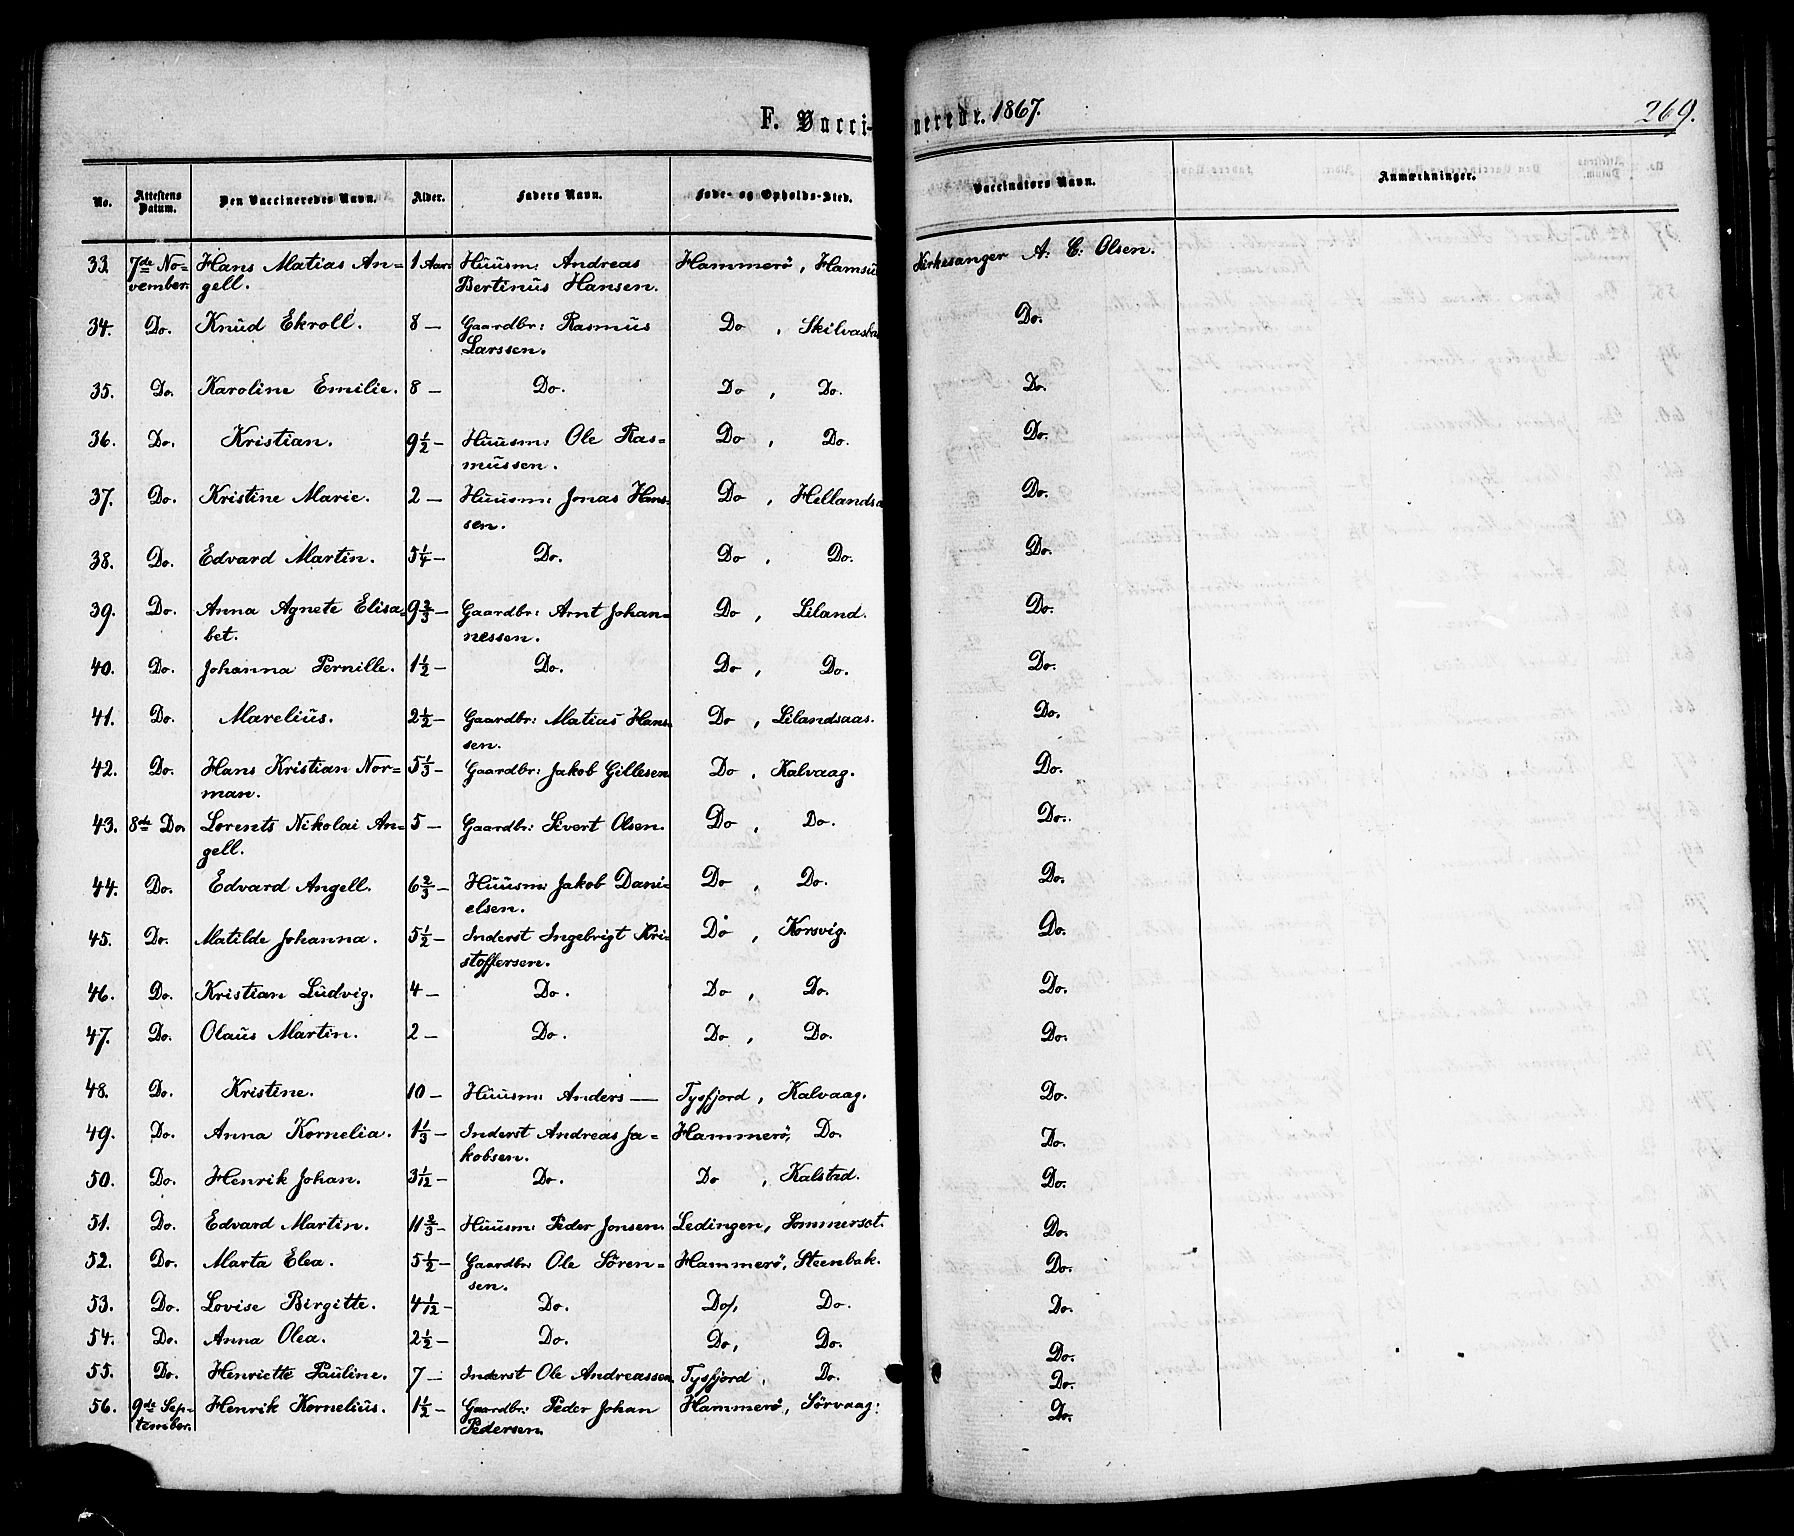 F. Vaccinerede. 1867.
269.
No. Attestens Datum. Den Vaccineredes Navn. Alder. Faders Navn. Føde- og Opholds-Sted. Vaccinators Navn. Anmærkninger.
33. 7de No- Hans Matias An- 1 Aar. Huusm: Andreas Hammerö, Kirkesanger A. C. Olsen.
vember. gell. Bertinus Hansen.
34. Do. Knud Ekroll. 8 — Gaardbr: Rasmus Do , Do.
Larssen.
35. Do. Karoline Emilie. 8 — Do. Do , Do. Do.
36. Do. Kristian. 9 1/2 — Huusm: Ole Ras- Do , Do. Do.
mussen.
37. Do. Kristine Marie. 2 — Huusm: Jonas Hans- Do , Do.
sen.
38. Do. Edvard Martin. 5 1/4 — Do. Do , Do. Do.
39. Do. Anna Agnete Elisa- 9 2/3 — Gaardbr: Arnt Johan- Do , Liland. Do.
bet. nessen.
40. Do. Johanna Pernille. 1 1/2 — Do. Do , Do. Do.
41. Do. Marelius. 2 1/2 — Gaardbr: Matias Hans- Do , Lilandsaas. Do.
sen.
42. Do. Hans Kristian Nor- 5 1/3 — Gaardbr: Jakob Gillesen Do , Kalvaag. Do.
man.
43. 8de Do. Lorents Nikolai An- 5 — Gaardbr: Sivert Olsen. Do , Do. Do.
gell.
44. Do. Edvard Angell. 6 2/3 — Huusm: Jakob Dani- Do , Do. Do.
elsen.
45. Do. Matilde Johanna. 5 1/2 — Inderst Ingebrigt Kri- Do , Korsvig. Do.
stoffersen.
46. Do. Kristian Ludvig. 4 — Do. Do , Do. Do.
47. Do. Olaus Martin. 2 — Do. Do , Do. Do.
48. Do. Kristine. 10 — Huusm: Anders — Tysfjord, Kalvaag. Do.
49. Do. Anna Kornelia. 1 1/3 — Inderst Andreas Ja- Hammerö, Do. Do.
kobsen.
50. Do. Henrik Johan. 3 1/12 — Do. Do , Kalstad. Do.
51. Do. Edvard Martin. 11 2/3 — Huusm: Peder Jonsen. Ledingen, Sommerset. Do.
52. Do. Marta Elea. 5 1/2 — Gaardbr: Ole Sören- Hammerö, Steenbak. Do.
sen.
53. Do. Lovise Birgitte. 4 1/12 — Do. Do, Do. Do.
54. Do. Anna Olea. 2 1/2 — Do. Do, Do. Do.
55. Do. Henriette Pauline. 7 — Inderst Ole Andreassen. Tysfjord, Do. Do.
56. 9de Sep- Henrik Kornelius. 1 1/2 — Gaardbr: Peder Johan Hammerö, Sörvaag: Do.
tember. Pedersen.